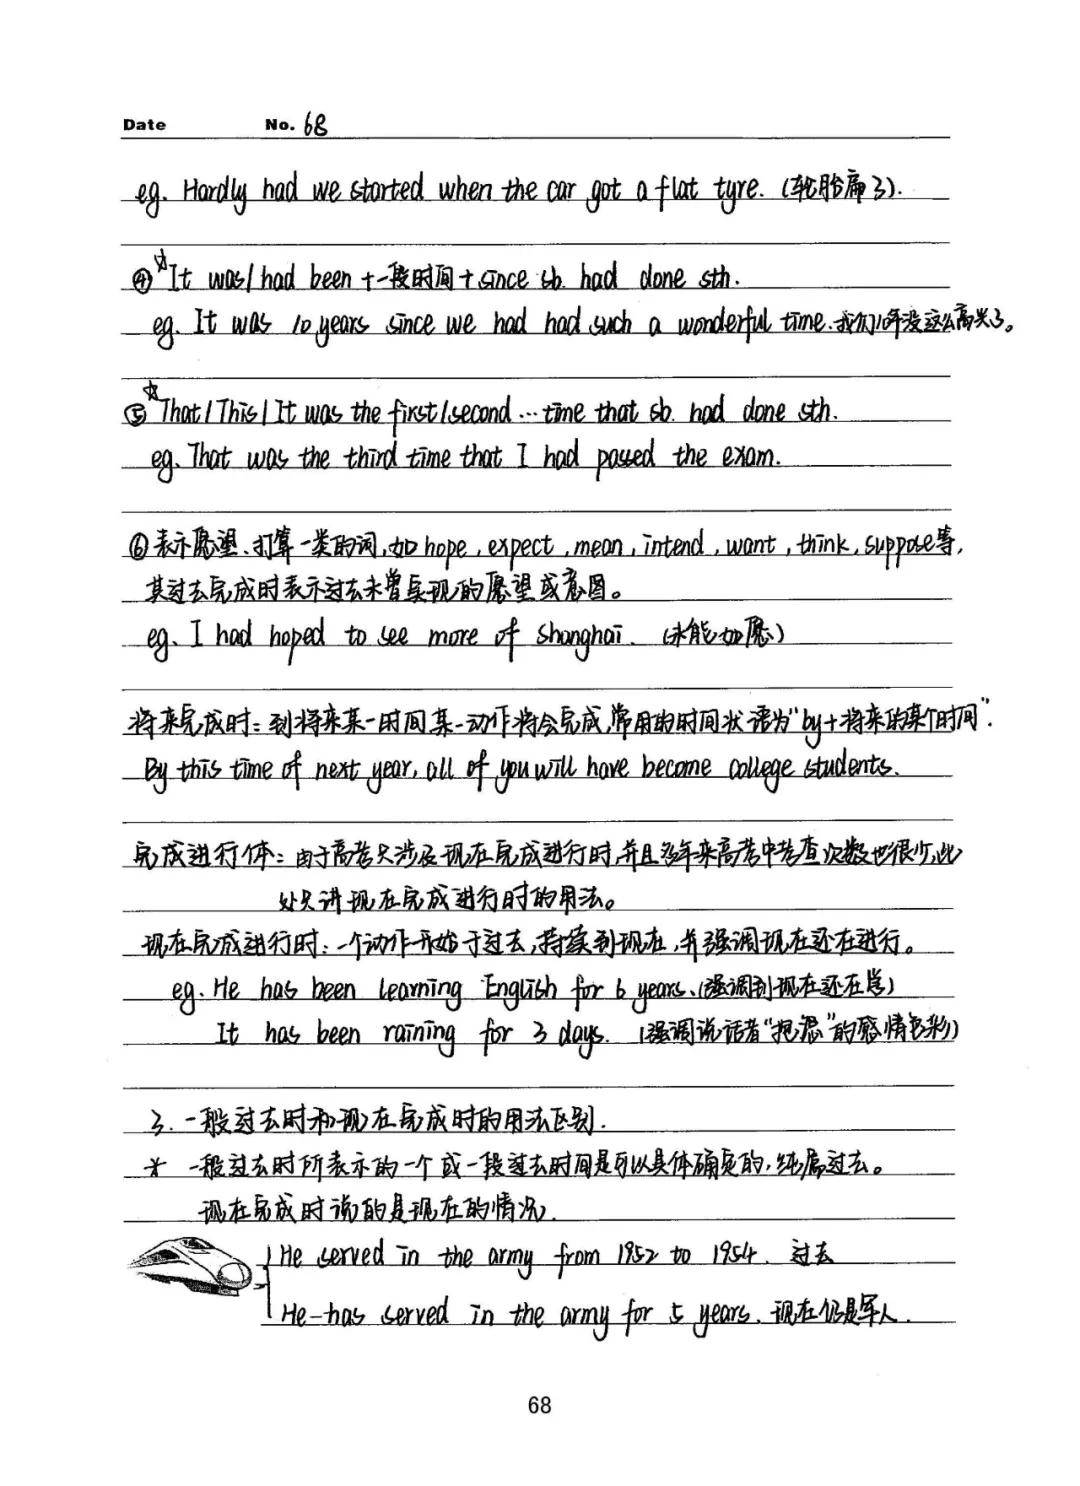 Date No. 68
eg. Hardly had we started when the car got a flat tyre. (轮胎扁了).
④☆It was/had been +一段时间+since sb. had done sth.
eg. It was 10 years since we had had such a wonderful time. 我们10年没这么高兴了。
⑤☆That/This/It was the first/second…time that sb. had done sth.
eg. That was the third time that I had passed the exam.
⑥表示愿望、打算一类的词,如hope, expect, mean, intend, want, think, suppose等,
其过去完成时表示过去未曾实现的愿望或意图。
eg. I had hoped to see more of Shanghai. (未能如愿)
将来完成时:到将来某一时间某一动作将会完成,常用的时间状语为“by+将来的某个时间”.
By this time of next year, all of you will have become college students.
完成进行体:由于高考只涉及现在完成进行时,并且多年来高考中考查次数也很少,此
处只讲现在完成进行时的用法。
现在完成进行时:一个动作开始于过去,持续到现在,并强调现在还在进行。
eg. He has been learning English for 6 years. (强调到现在还在学)
It has been raining for 3 days. (强调说话者“抱怨”的感情色彩)
3. 一般过去时和现在完成时的用法区别.
* 一般过去时所表示的一个或一段过去时间是可以具体确定的,纯属过去。
现在完成时说的是现在的情况.
He served in the army from 1952 to 1954. 过去
He has served in the army for 5 years. 现在仍是军人.
68